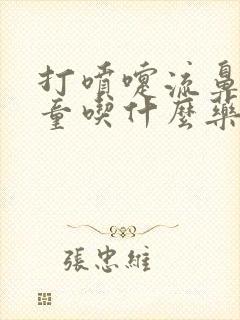 打噴嚏流鼻
童喫什麼藥
張忠維